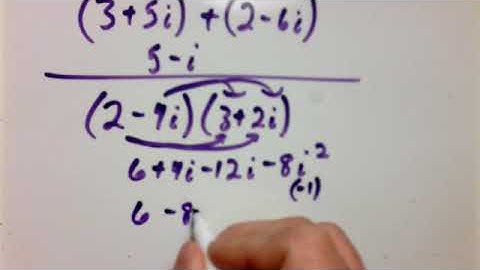 (3+5i) + (2-6i)
5-i
(2-4i)(3+2i)
6+4i-12i-8i²
(-1)
6 -8